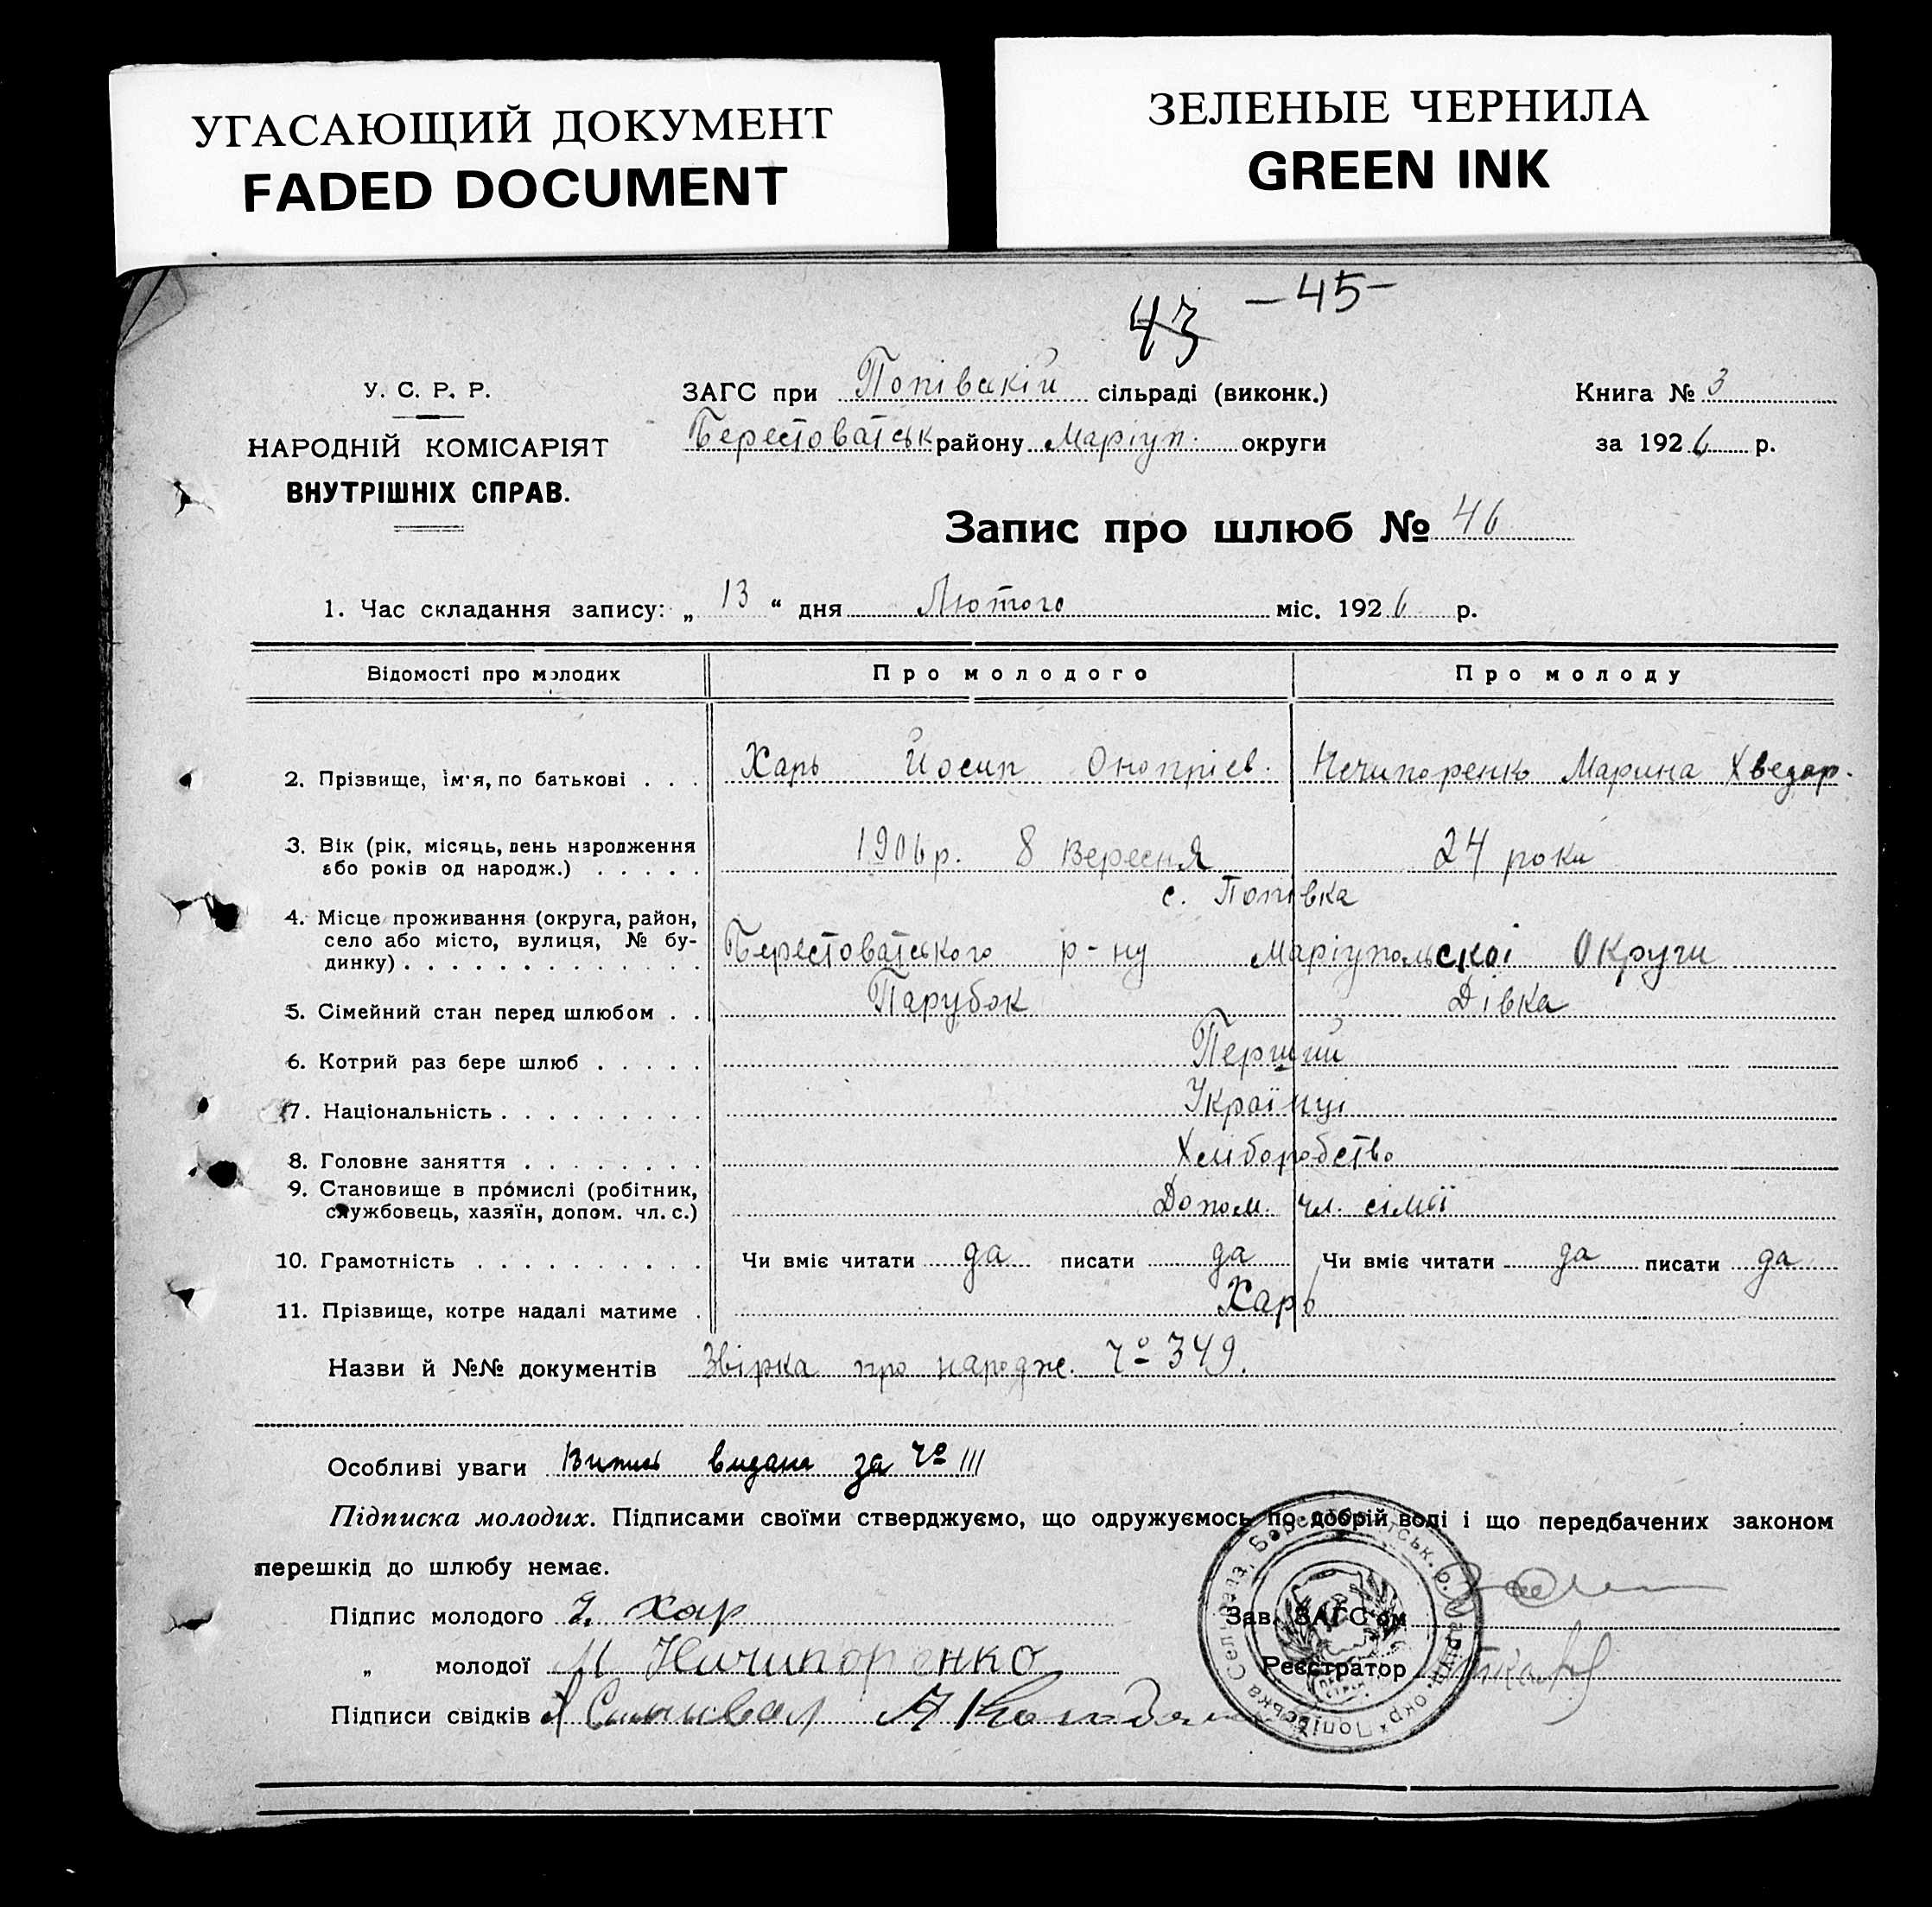 УГАСАЮЩИЙ ДОКУМЕНТ
FADED DOCUMENT
ЗЕЛЕНЫЕ ЧЕРНИЛА
GREEN INK
43 –45–
У. С. Р. Р.
НАРОДНІЙ КОМІСАРІЯТ
ВНУТРІШНІХ СПРАВ.
ЗАГС при Попівскій сільраді (виконк.)
Берестоватськ району Маріуп. округи
Книга № 3
за 1926 р.
Запис про шлюб № 46
1. Час складання запису: „ 13 “ дня Лютого міс. 1926 р.
Відомості про молодих Про молодого Про молоду
2. Прізвище, ім'я, по батькові . . . Харь Йосип Онопрієв. Нечипоренко Марина Хведор.
3. Вік (рік, місяць, день народження або років од народж.) . . . . . 1906 р. 8 Вересня 24 роки
с. Попівка
4. Місце проживання (округа, район, село або місто, вулиця, № будинку) . . . Берестоватського р-ну Маріупольскої Округи
5. Сімейний стан перед шлюбом . . Парубок Дівка
6. Котрий раз бере шлюб . . . . . Перший
7. Національність . . . . . . . . . Українці
8. Головне заняття . . . . . . . . Хліборобство
9. Становище в промислі (робітник, службовець, хазяїн, допом. чл. с.) Допом. чл. сімї
10. Грамотність . . . . . . . . . . Чи вміє читати да писати да Чи вміє читати да писати да
11. Прізвище, котре надалі матиме . Харь
Назви й №№ документів Звірка про народж. Ч° 349.
Особливі уваги Випись видана за Ч° 111
Підписка молодих. Підписами своїми стверджуємо, що одружуємось по добрій волі і що передбачених законом
перешкід до шлюбу немає.
Підпис молодого Й. Хар
Зав. ЗАГС'ом
„ молодої М Ничипоренко
Реєстратор
Підписи свідків